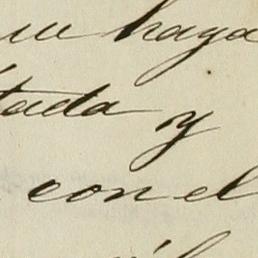 haya
tada y
con el